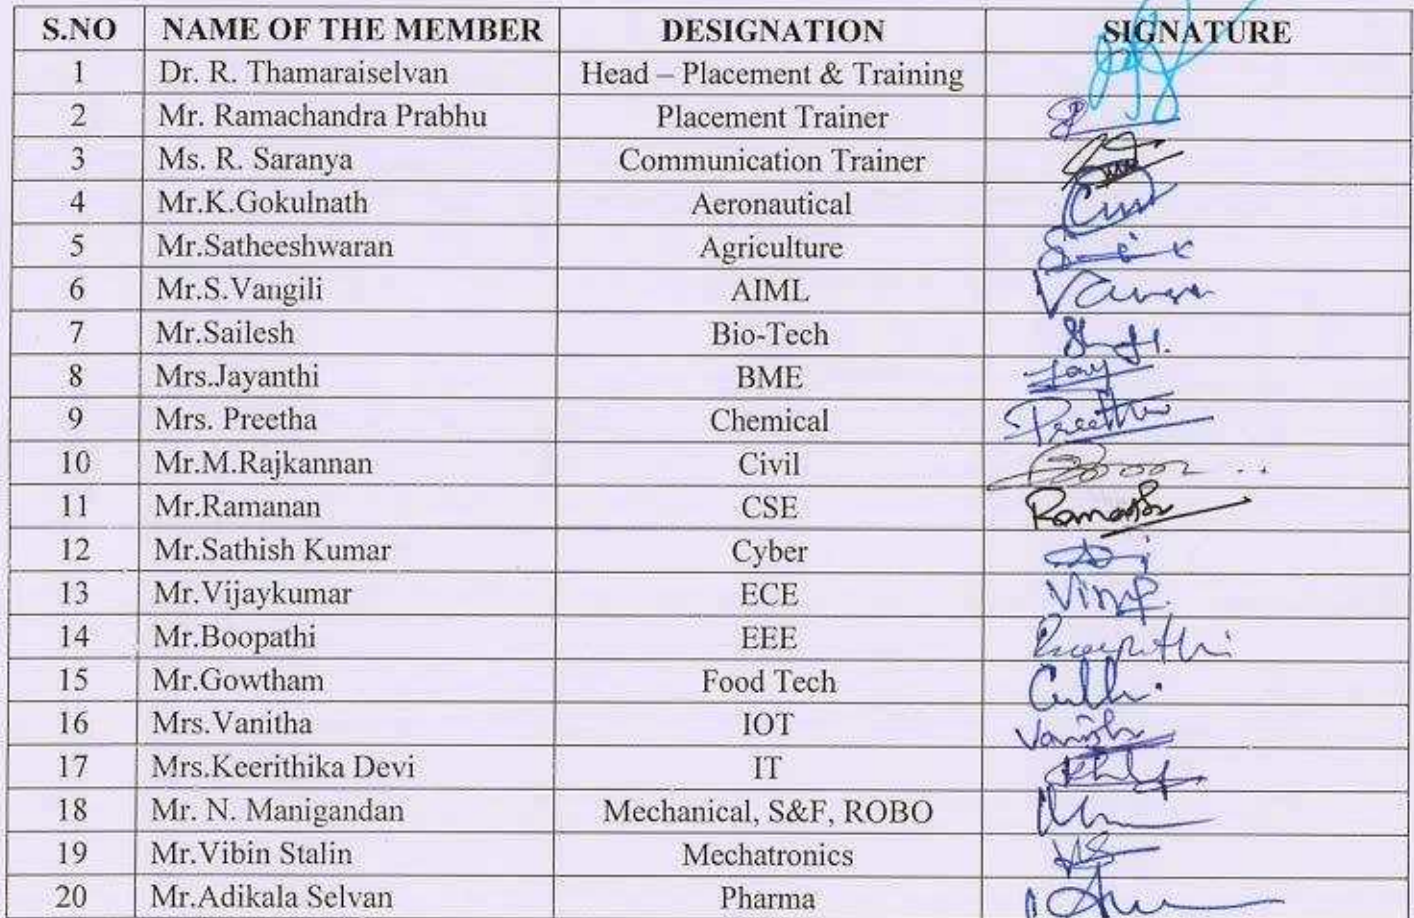 S.NO NAME OF THE MEMBER DESIGNATION SIGNATURE
1 Dr. R. Thamaraiselvan Head – Placement & Training
2 Mr. Ramachandra Prabhu Placement Trainer
3 Ms. R. Saranya Communication Trainer
4 Mr.K.Gokulnath Aeronautical
5 Mr.Satheeshwaran Agriculture
6 Mr.S.Vangili AIML
7 Mr.Sailesh Bio-Tech
8 Mrs.Jayanthi BME
9 Mrs. Preetha Chemical
10 Mr.M.Rajkannan Civil
11 Mr.Ramanan CSE
12 Mr.Sathish Kumar Cyber
13 Mr.Vijaykumar ECE
14 Mr.Boopathi EEE
15 Mr.Gowtham Food Tech
16 Mrs.Vanitha IOT
17 Mrs.Keerithika Devi IT
18 Mr. N. Manigandan Mechanical, S&F, ROBO
19 Mr.Vibin Stalin Mechatronics
20 Mr.Adikala Selvan Pharma